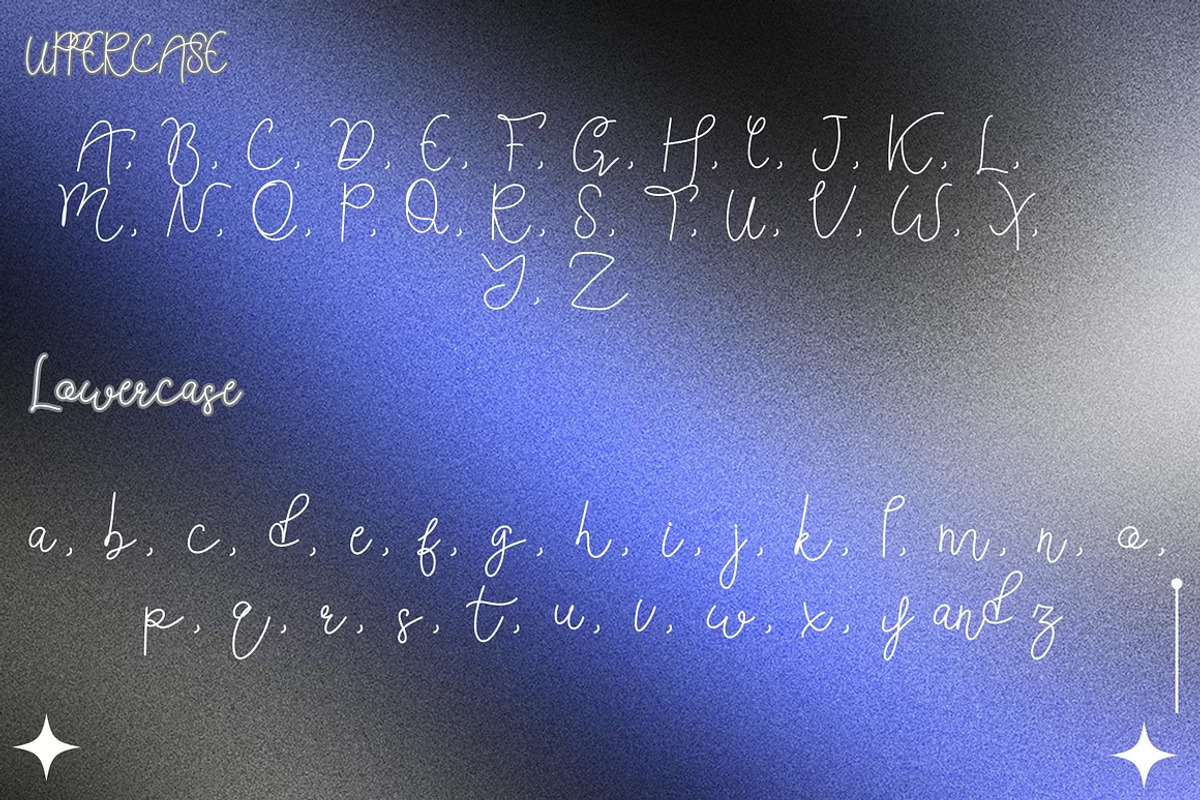 UPPERCASE
A, B, C, D, E, F, G, H, I, J, K, L,
M, N, O, P, Q, R, S, T, U, V, W, X,
Y, Z
Lowercase
a, b, c, d, e, f, g, h, i, j, k, l, m, n, o,
p, q, r, s, t, u, v, w, x, y and z